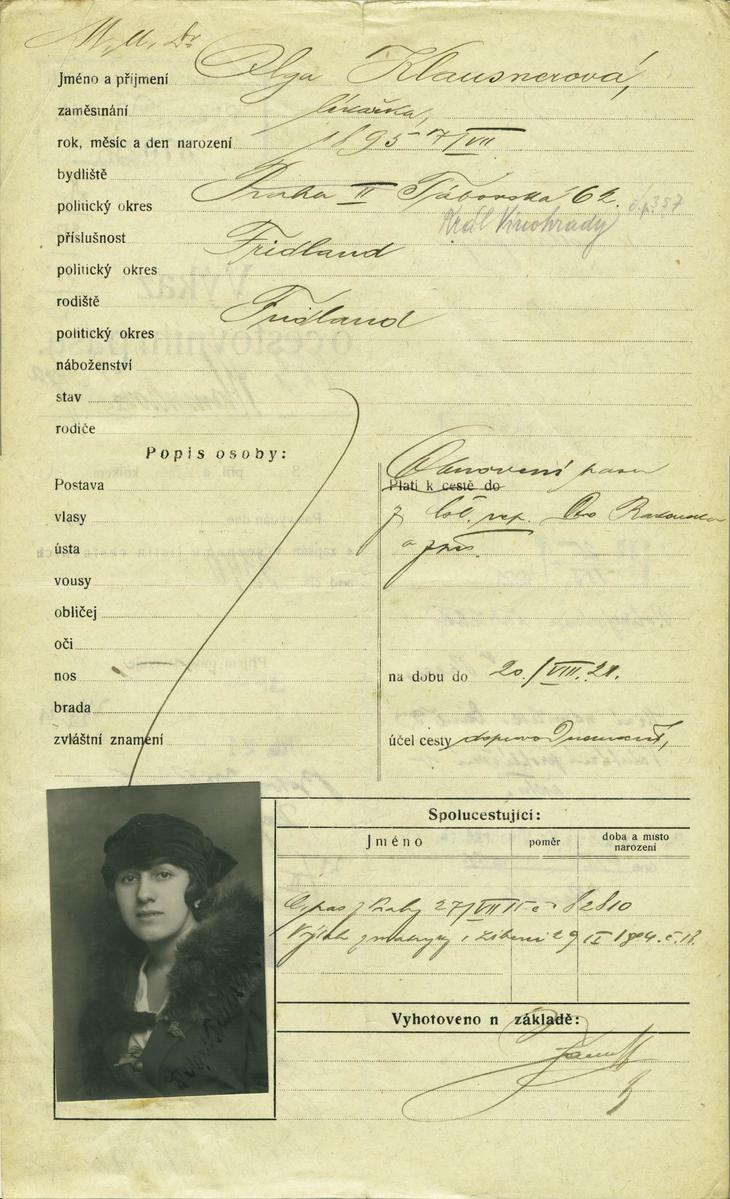 M.U.Dr
Jméno a příjmení Olga Klausnerová,
zaměstnání lékařka,
rok, měsíc a den narození 1895 7/VII
bydliště Praha II Táborská 62.
č.p. 357
politický okres Král Vinohrady
příslušnost Fridland
politický okres
rodiště Fridland
politický okres
náboženství
stav
rodiče
Popis osoby:
Postava
vlasy
ústa
vousy
obličej
oči
nos
brada
zvláštní znamení
Obnovení pasu
Platí k cestě do
z čsl. rep. do Rakouska
a zpět.
na dobu do 20./VIII. 21.
účel cesty
Spolucestující:
Jméno poměr doba a místo
narození
C. pas z Prahy 27/VII č 82810
IX č. 18.
Vyhotoveno n základě: